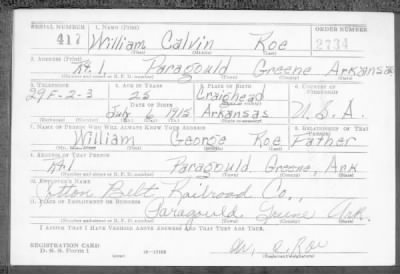 SERIAL NUMBER 1. NAME (Print) ORDER NUMBER
417 William Calvin Roe 2734
(First) (Middle) (Last)
2. ADDRESS (Print)
Rt. 1 Paragould Greene Arkansas
(Number and street or R. F. D. number) (Town) (County) (State)
3. TELEPHONE 4. AGE IN YEARS 5. PLACE OF BIRTH 6. COUNTRY OF CITIZENSHIP
29F-2-3 25 Craighead
DATE OF BIRTH
July 6 1915 Arkansas U.S.A.
(Mo.) (Day) (Yr.) (State or country)
7. NAME OF PERSON WHO WILL ALWAYS KNOW YOUR ADDRESS 8. RELATIONSHIP OF THAT PERSON
William George Roe Father
(First) (Middle) (Last)
9. ADDRESS OF THAT PERSON
Rt. 1 Paragould Greene, Ark
(Number and street or R. F. D. number) (Town) (County) (State)
10. EMPLOYER'S NAME
Cotton Belt Railroad Co.,
11. PLACE OF EMPLOYMENT OR BUSINESS
Paragould Greene Ark.
(Number and street or R. F. D. number) (Town) (County) (State)
I AFFIRM THAT I HAVE VERIFIED ABOVE ANSWERS AND THAT THEY ARE TRUE.
REGISTRATION CARD
D. S. S. Form 1 16-17105 (Registrant's signature)